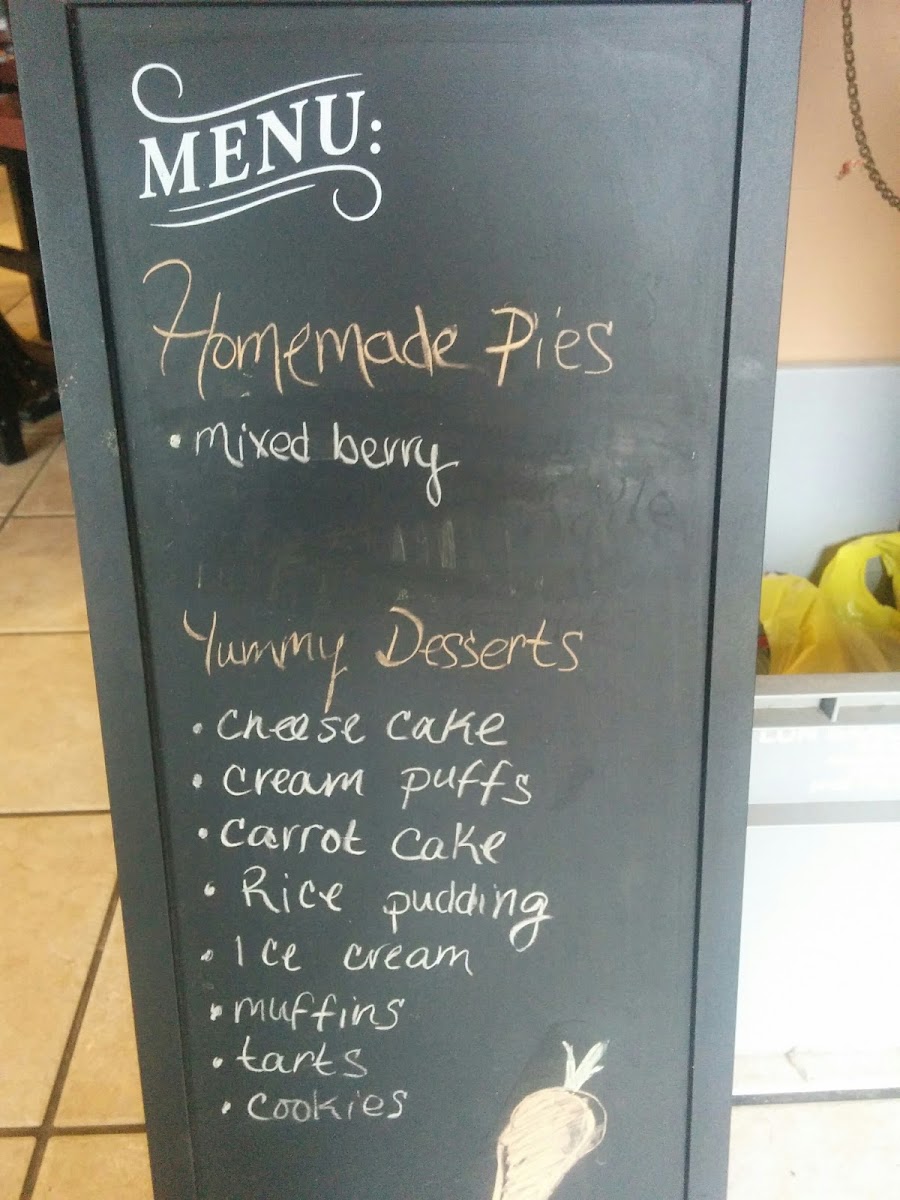 MENU:
Homemade Pies
• mixed berry
Yummy Desserts
• cheese cake
• cream puffs
• carrot cake
• Rice pudding
• Ice cream
• muffins
• tarts
• cookies